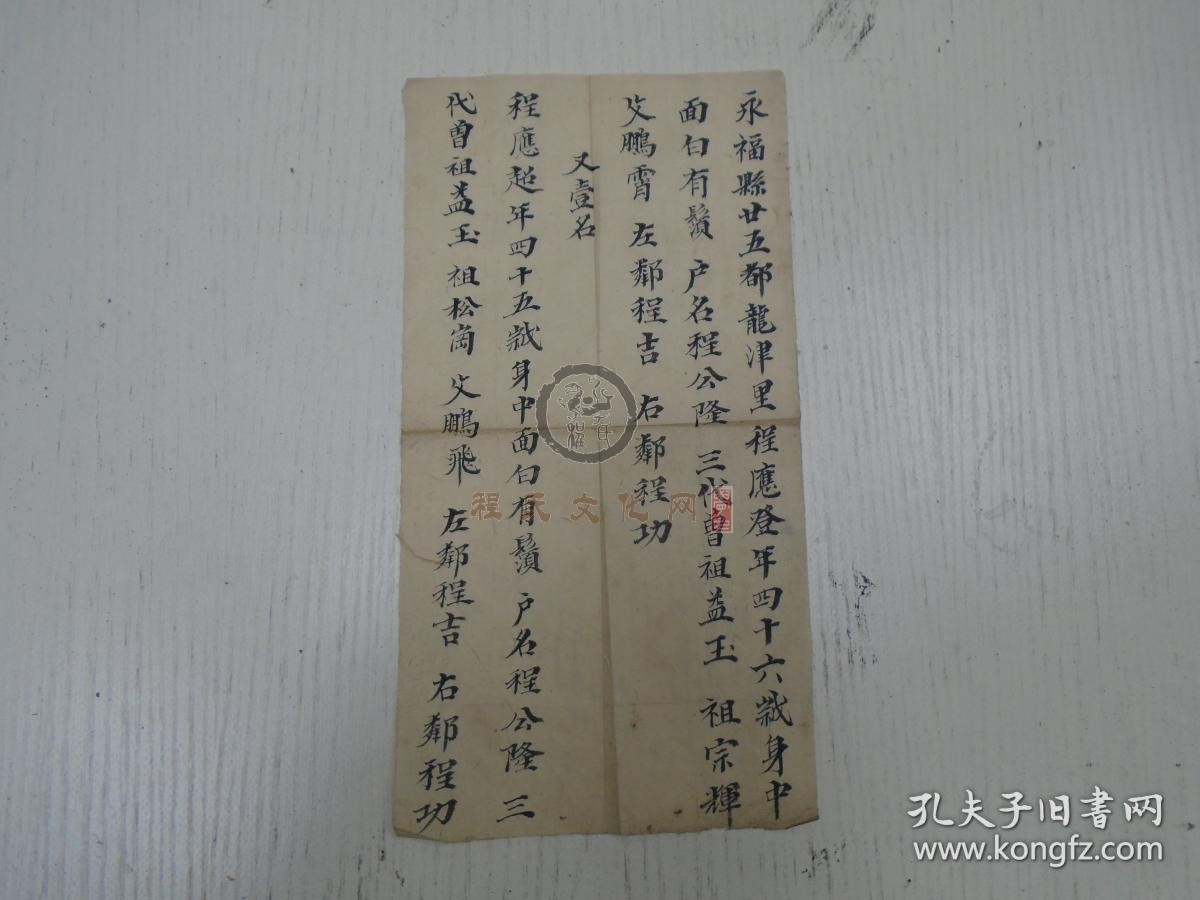 永福縣廿五都龍津里程應登年四十六歲身中
面白有鬚 户名程公隆 三代曾祖益玉 祖宗輝
父鵬霄 左鄰程吉 右鄰程功
又壹名
程應超年四十五歲身中面白有鬚 户名程公隆 三
代曾祖益玉 祖松崗 父鵬飛 左鄰程吉 右鄰程功
程氏文化网
孔夫子旧书网
www.kongfz.com